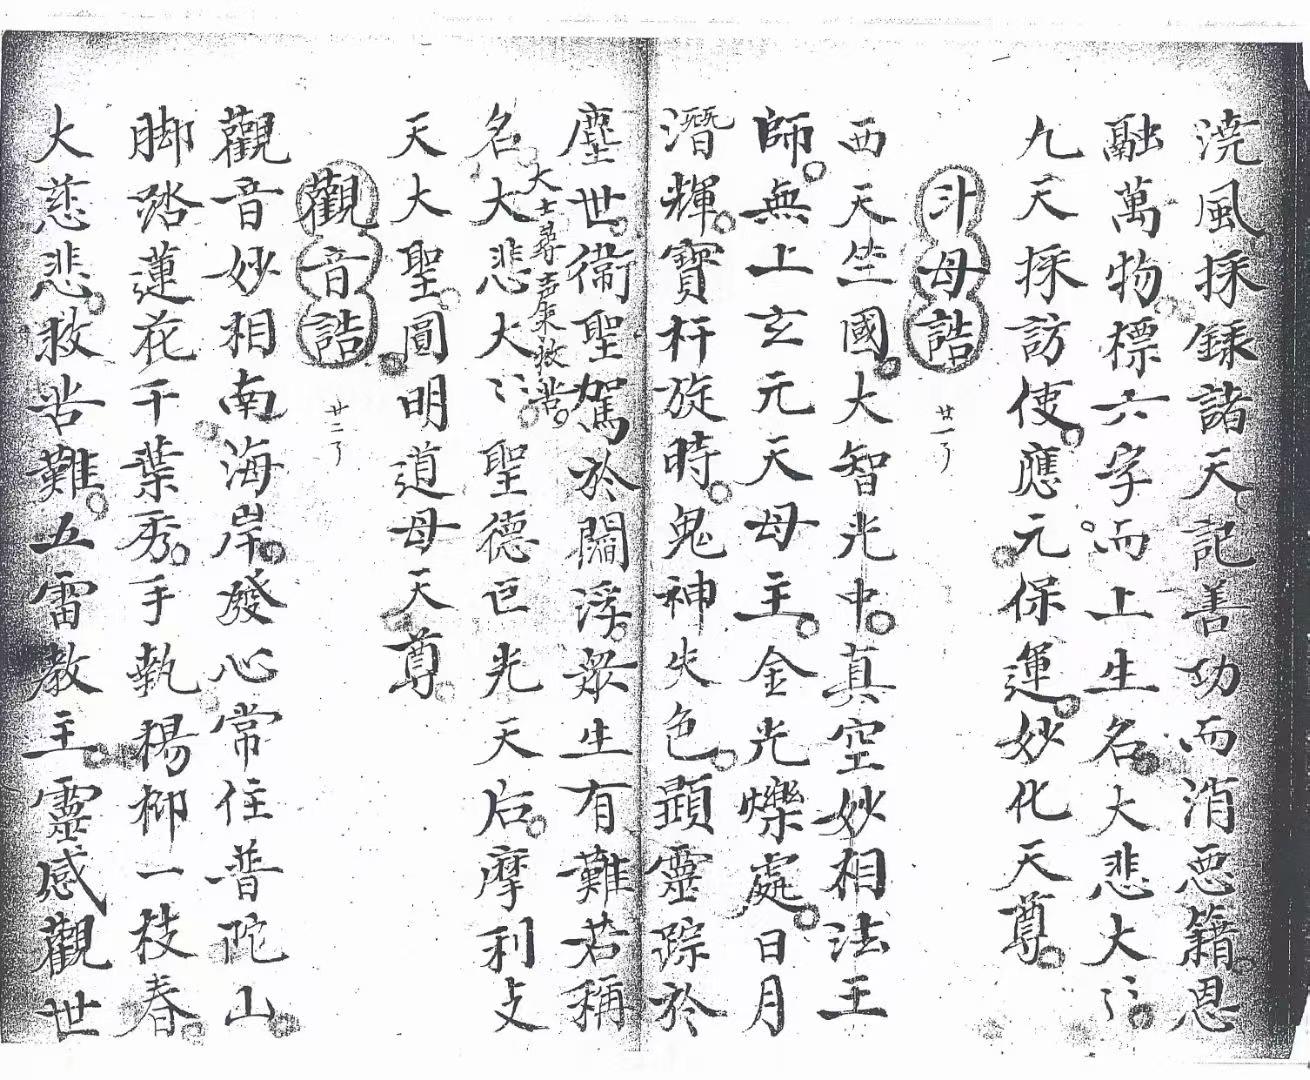 澆風採錄諸天記善功而消惡籍恩
融萬物標六字而上生名大悲大〻
九天採訪使應元保運妙化天尊
斗母誥
廿一了
西天竺國大智光中真空妙相法王
師無上玄元天母主金光爍處日月
潛輝寶杵旋時鬼神失色顯靈踪於
塵世衞聖駕於閻浮眾生有難若稱
名大士尋声來救苦大悲大〻聖德巨光天后摩利支
天大聖圓明道母天尊
觀音誥
廿二了
觀音妙相南海岸發心常住普陀山
脚踏蓮花千葉秀手執楊柳一枝春
大慈悲救苦難五雷教主靈感觀世